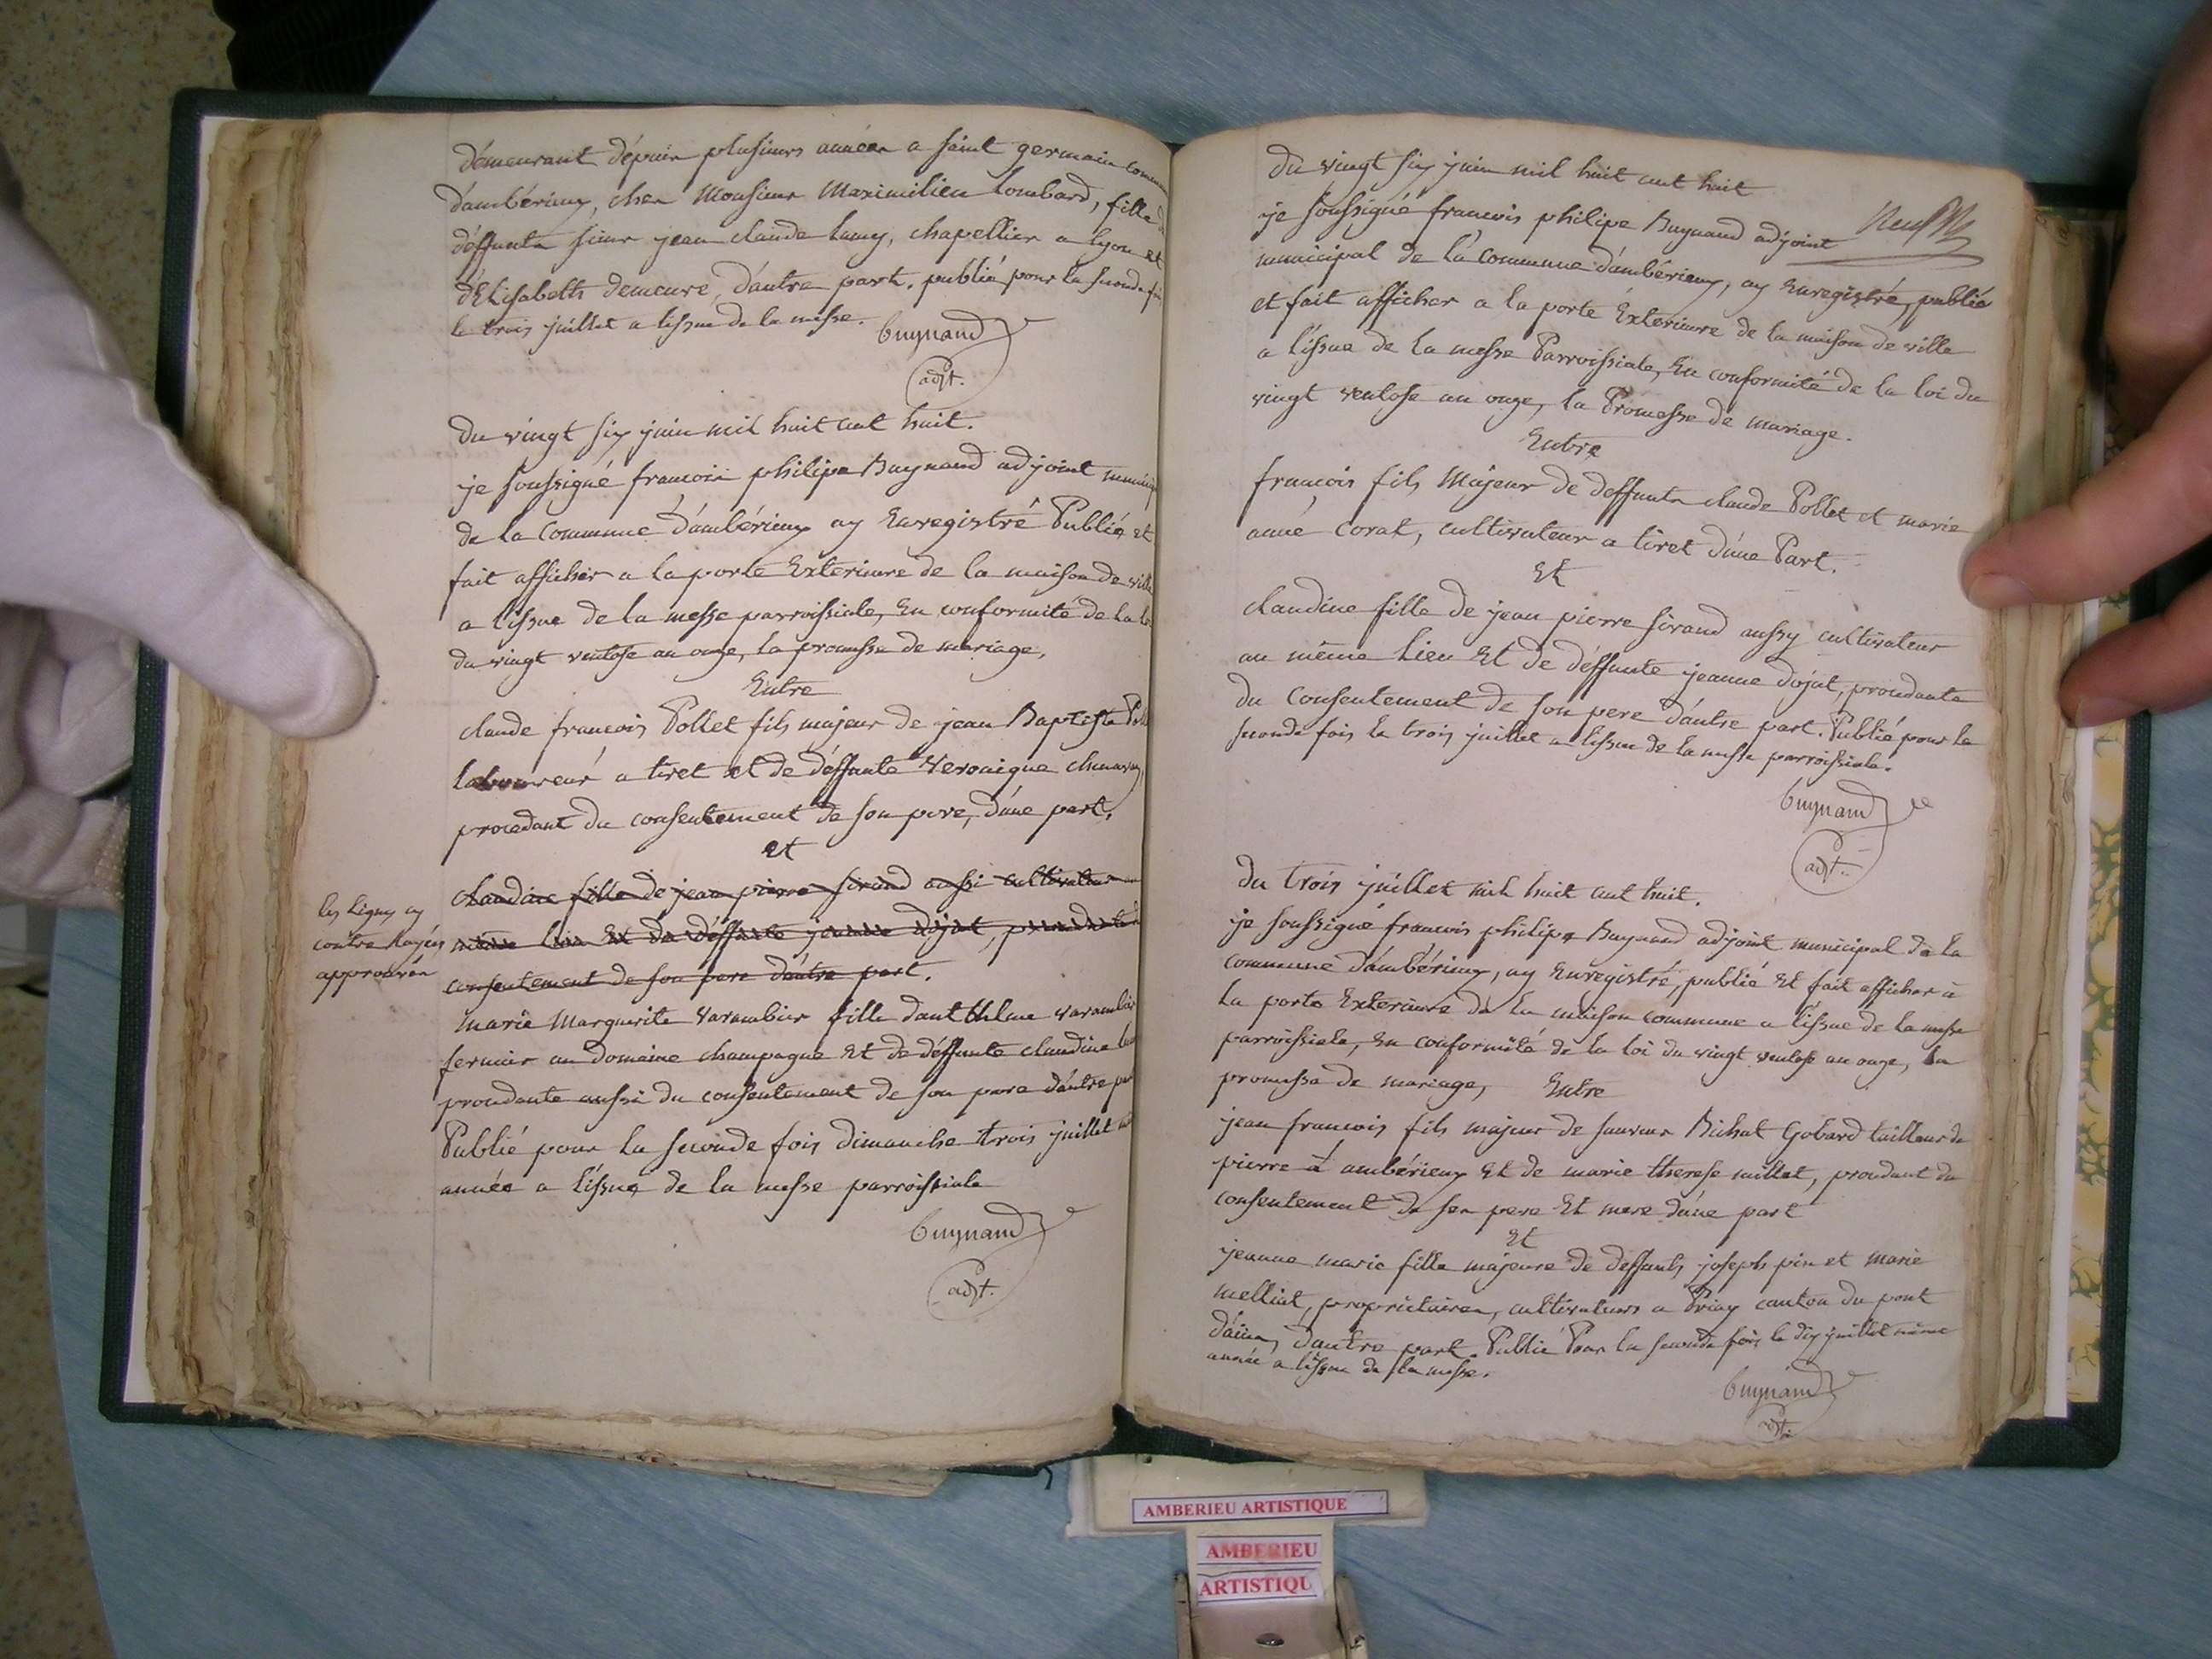 démeurant dépuis plusieurs années a saint germain commune
d'ambérieux, chez Monsieur Maximilien Lombard, fille de
déffunts sieur jean claude Lamy, chapellier a lyon et
d'Elisabeth demeure, d'autre part. publié pour la seconde fois
le trois juillet a lissue de la messe.
Buynand
adjt.
du vingt six juin mil huit cent huit.
je soussigné francois philipe Buynand adjoint municip
de la commune d'ambérieux ay Enregistré Publié et
fait afficher a la porte Exterieure de la maison de ville
a l'issue de la messe parroissiale, En conformité de la loi
du vingt ventose an onze, la promesse de mariage,
Entre
claude francois Pollet fils majeur de jean Baptiste Poll
laboureur a tiret et de déffunte Veronique
procedant du consentement de son pere, d'une part.
et
claudine fille de jean pierre sirand aussi cultivateur au
même lieu Et de déffunte jeanne dojat, procedante
consentement de son pere d'autre part.
les lignes cy
contre Rayées
approuvées
marie Marguerite Varambier fille d'anthelme varambier
fermier au domaine champagne Et de déffunte claudine
procedante aussi du consentement de son pere d'autre part
Publié pour la seconde fois dimanche trois juillet
année a l'issue de la messe parroissiale
Buynand
adjt.
du vingt six juin mil huit cent huit
je soussigné francois philipe Buynand adjoint
municipal de la commune d'ambérieux, ay Enregistré, publié
et fait afficher a la porte Exterieure de la maison de ville
a l'issue de la messe Parroissiale, En conformité de la loi du
vingt ventose an onze, la Promesse de mariage.
Entre
francois fils Majeur de deffunts claude Pollet et marie
anne corat, cultivateur a tiret d'une Part.
Et
claudine fille de jean pierre sirand aussy cultivateur
au même lieu Et de déffunte jeanne dojat, procedante
du consentement de son pere d'autre part. Publié pour la
seconde fois le trois juillet a lissue de la messe parroissiale.
Buynand
adjt.
du trois juillet mil huit cent huit.
je soussigné francois philipe Buynand adjoint municipal de la
commune d'ambérieux, ay Enregistré, publié Et fait afficher à
la porte Exterieure de la maison commune a l'issue de la messe
parroissiale, En conformité de la loi du vingt ventose an onze, la
promesse de mariage, Entre
jean francois fils majeur de sauveur Bichat Gobard tailleur de
pierre à ambérieux Et de marie therese millet, procedant du
consentement de ses pere Et mere d'une part
Et
jeanne marie fille majeure de deffunts joseph pin et marie
melliat, proprietaires, cultivateurs a Priay canton du pont
d'ain, d'autre part. Publié Pour la seconde fois le dix juillet même
année a l'issue de la messe.
Buynand
adjt.
AMBERIEU ARTISTIQUE
AMBERIEU
ARTISTIQU